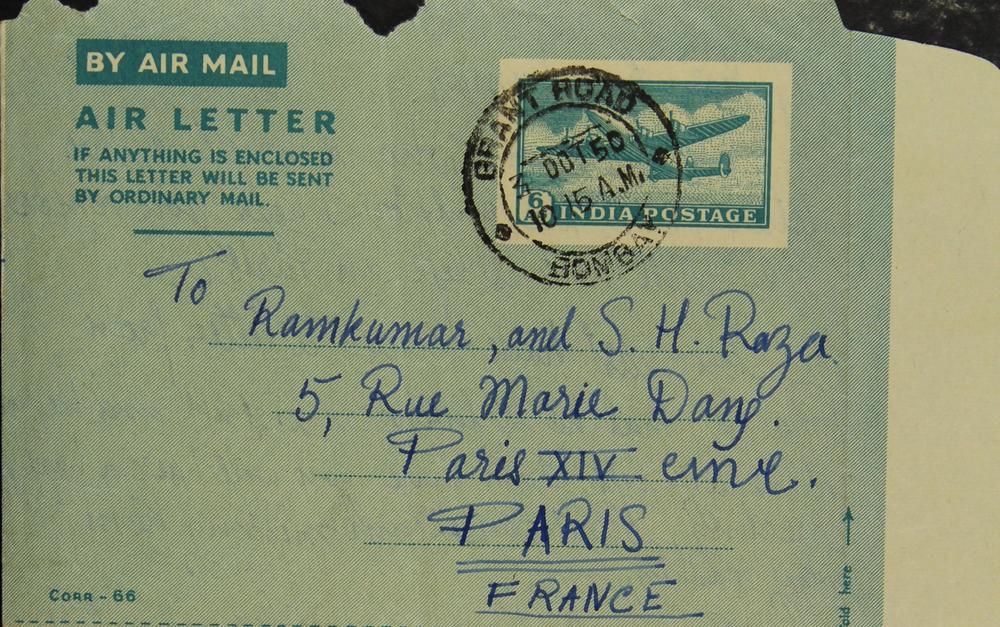 BY AIR MAIL
AIR LETTER
IF ANYTHING IS ENCLOSED
THIS LETTER WILL BE SENT
BY ORDINARY MAIL.
GRANT ROAD
OCT 50
10 15 A.M.
BOMBAY
6
AS INDIA POSTAGE
To
Ramkumar, and S. H. Raza
5, Rue Marie Dany.
Paris XIV eme.
PARIS
FRANCE
CORR - 66
fold here